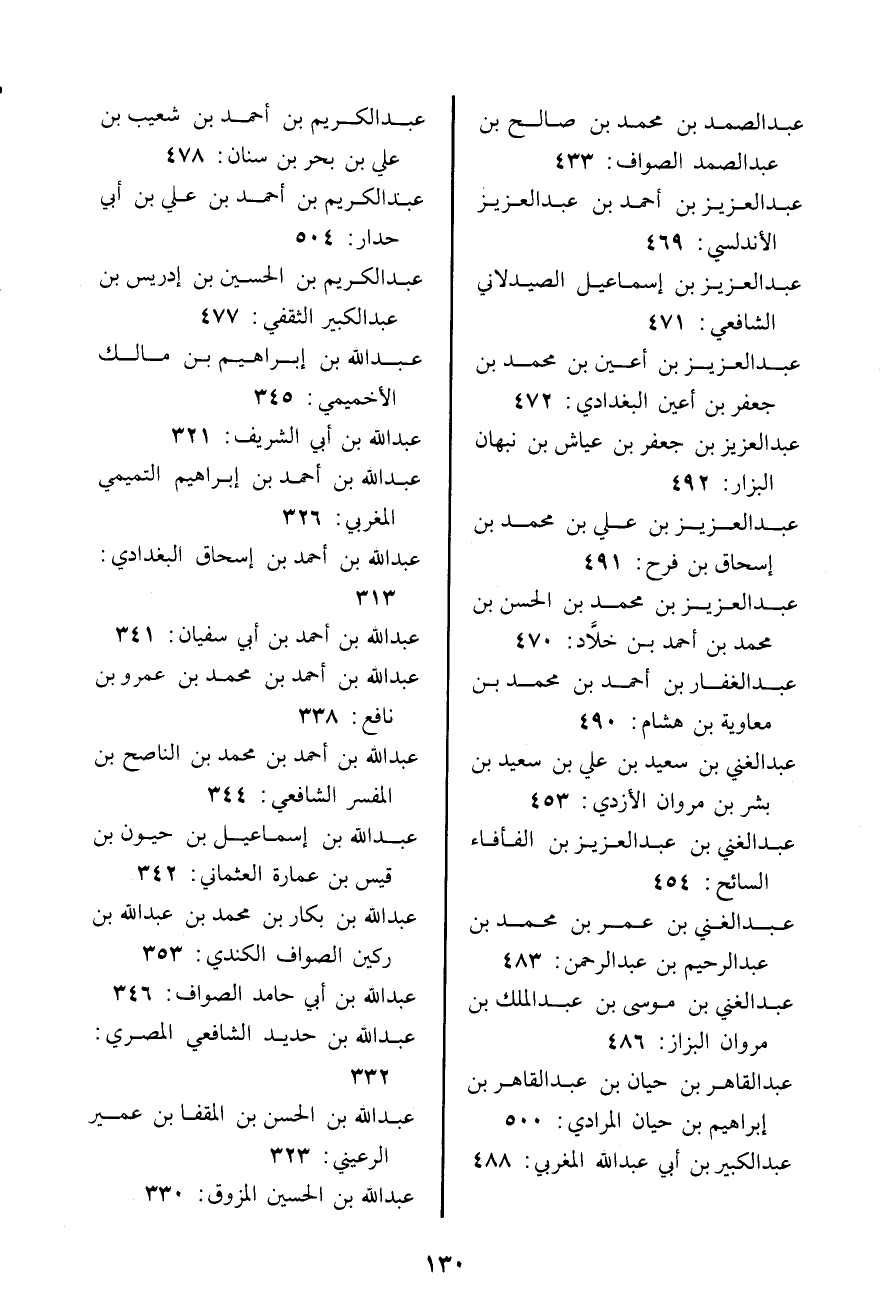 عبدالصمد بن محمد بن صالح بن
عبدالصمد الصواف: ٤٣٣
عبدالعزيز بن أحمد بن عبدالعزيز
الأندلسي: ٤٦٩
عبدالعزيز بن إسماعيل الصيدلاني
الشافعي: ٤٧١
عبدالعزيز بن أعين بن محمد بن
جعفر بن أعين البغدادي: ٤٧٢
عبدالعزيز بن جعفر بن عياش بن نبهان
البزار: ٤٩٢
عبدالعزيز بن علي بن محمد بن
إسحاق بن فرح: ٤٩١
عبدالعزيز بن محمد بن الحسن بن
محمد بن أحمد بن خلَّاد: ٤٧٠
عبدالغفار بن أحمد بن محمد بن
معاوية بن هشام: ٤٩٠
عبدالغني بن سعيد بن علي بن سعيد بن
بشر بن مروان الأزدي: ٤٥٣
عبدالغني بن عبدالعزيز بن الفأفاء
السائح: ٤٥٤
عبدالغني بن عمر بن محمد بن
عبدالرحيم بن عبدالرحمن: ٤٨٣
عبدالغني بن موسى بن عبدالملك بن
مروان البزاز: ٤٨٦
عبدالقاهر بن حيان بن عبدالقاهر بن
إبراهيم بن حيان المرادي: ٥٠٠
عبدالكبير بن أبي عبدالله المغربي: ٤٨٨
عبدالكريم بن أحمد بن شعيب بن
علي بن بحر بن سنان: ٤٧٨
عبدالكريم بن أحمد بن علي بن أبي
حدار: ٥٠٤
عبدالكريم بن الحسين بن إدريس بن
عبدالكبير الثقفي: ٤٧٧
عبدالله بن إبراهيم بن مالك
الأخميمي: ٣٤٥
عبدالله بن أبي الشريف: ٣٢١
عبدالله بن أحمد بن إبراهيم التميمي
المغربي: ٣٢٦
عبدالله بن أحمد بن إسحاق البغدادي:
٣١٣
عبدالله بن أحمد بن أبي سفيان: ٣٤١
عبدالله بن أحمد بن محمد بن عمرو بن
نافع: ٣٣٨
عبدالله بن أحمد بن محمد بن الناصح بن
المفسر الشافعي: ٣٤٤
عبدالله بن إسماعيل بن حيون بن
قيس بن عمارة العثماني: ٣٤٢
عبدالله بن بكار بن محمد بن عبدالله بن
ركين الصواف الكندي: ٣٥٣
عبدالله بن أبي حامد الصواف: ٣٤٦
عبدالله بن حديد الشافعي المصري:
٣٣٢
عبدالله بن الحسن بن المقفا بن عمير
الرعيني: ٣٢٣
عبدالله بن الحسين المزوق: ٣٣٠
١٣٠